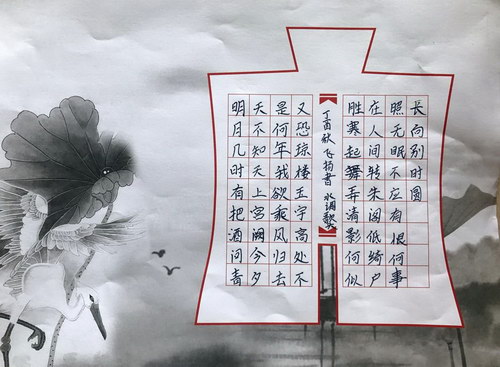 明月几时有把酒问青
天不知天上宫阙今夕
是何年我欲乘风归去
又恐琼楼玉宇高处不
丁酉秋 飞扬书 水调歌头
胜寒起舞弄清影何似
在人间转朱阁低绮户
照无眠不应有恨何事
长向别时圆